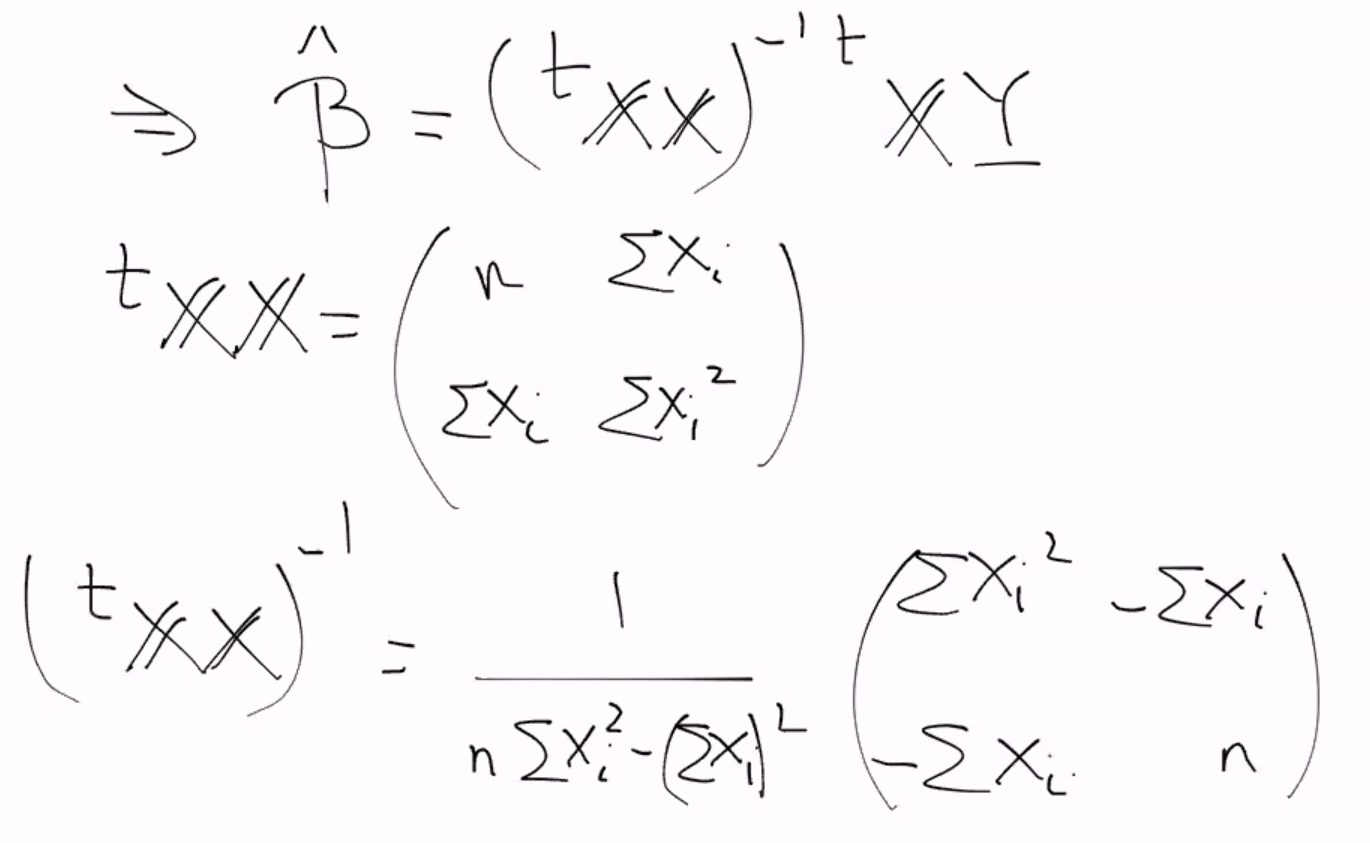 ⇒ β̂ = (ᵗ𝕏𝕏)⁻¹ ᵗ𝕏Y̲
ᵗ𝕏𝕏 = ( n ΣXᵢ
ΣXᵢ ΣXᵢ² )
(ᵗ𝕏𝕏)⁻¹ = 1 / (nΣXᵢ² - (ΣXᵢ)²) ( ΣXᵢ² -ΣXᵢ
-ΣXᵢ n )